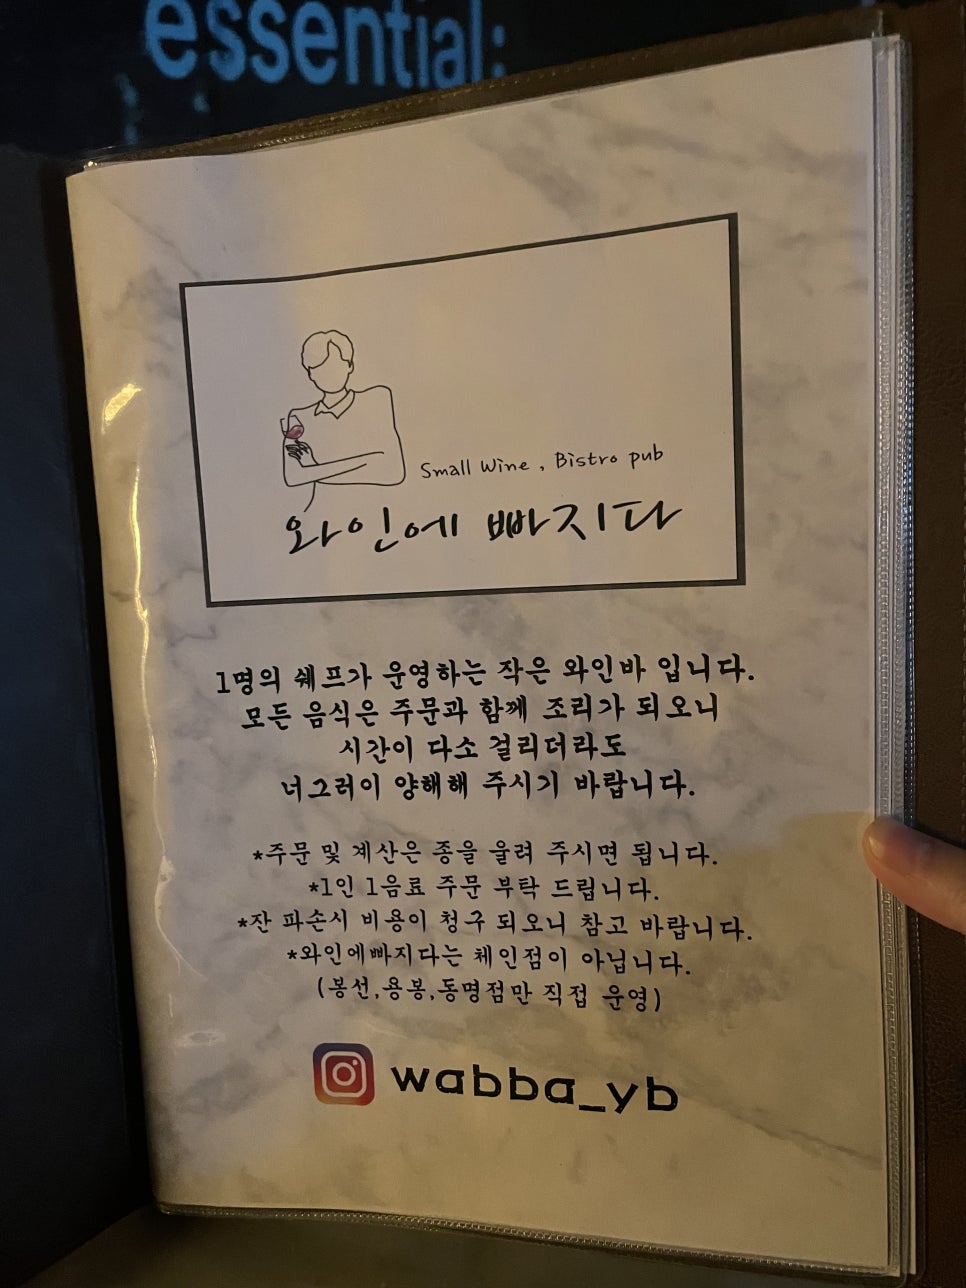 essential:
Small Wine , Bistro pub
와인에 빠지다
1명의 쉐프가 운영하는 작은 와인바 입니다.
모든 음식은 주문과 함께 조리가 되오니
시간이 다소 걸리더라도
너그러이 양해해 주시기 바랍니다.
*주문 및 계산은 종을 울려 주시면 됩니다.
*1인 1음료 주문 부탁 드립니다.
*잔 파손시 비용이 청구 되오니 참고 바랍니다.
*와인에빠지다는 체인점이 아닙니다.
(봉선,용봉,동명점만 직접 운영)
wabba_yb